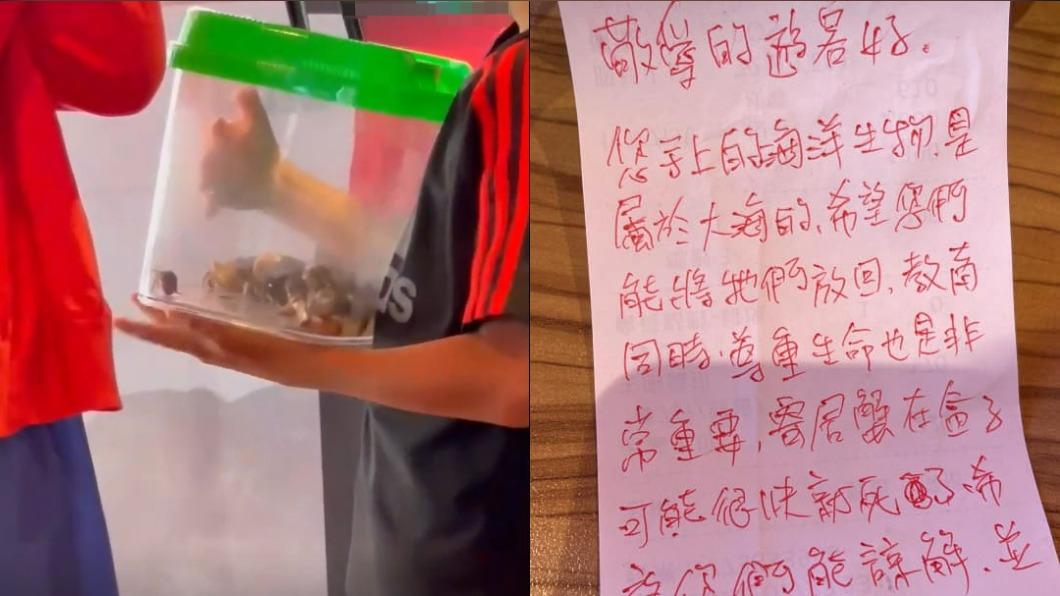 敬愛的遊客好。
您手上的海洋生物,是
屬於大海的,希望你們
能將牠們放回,教育
同時,尊重生命也是非
常重要,寄居蟹在盒子
可能很快就死了,希
望你們能諒解,並